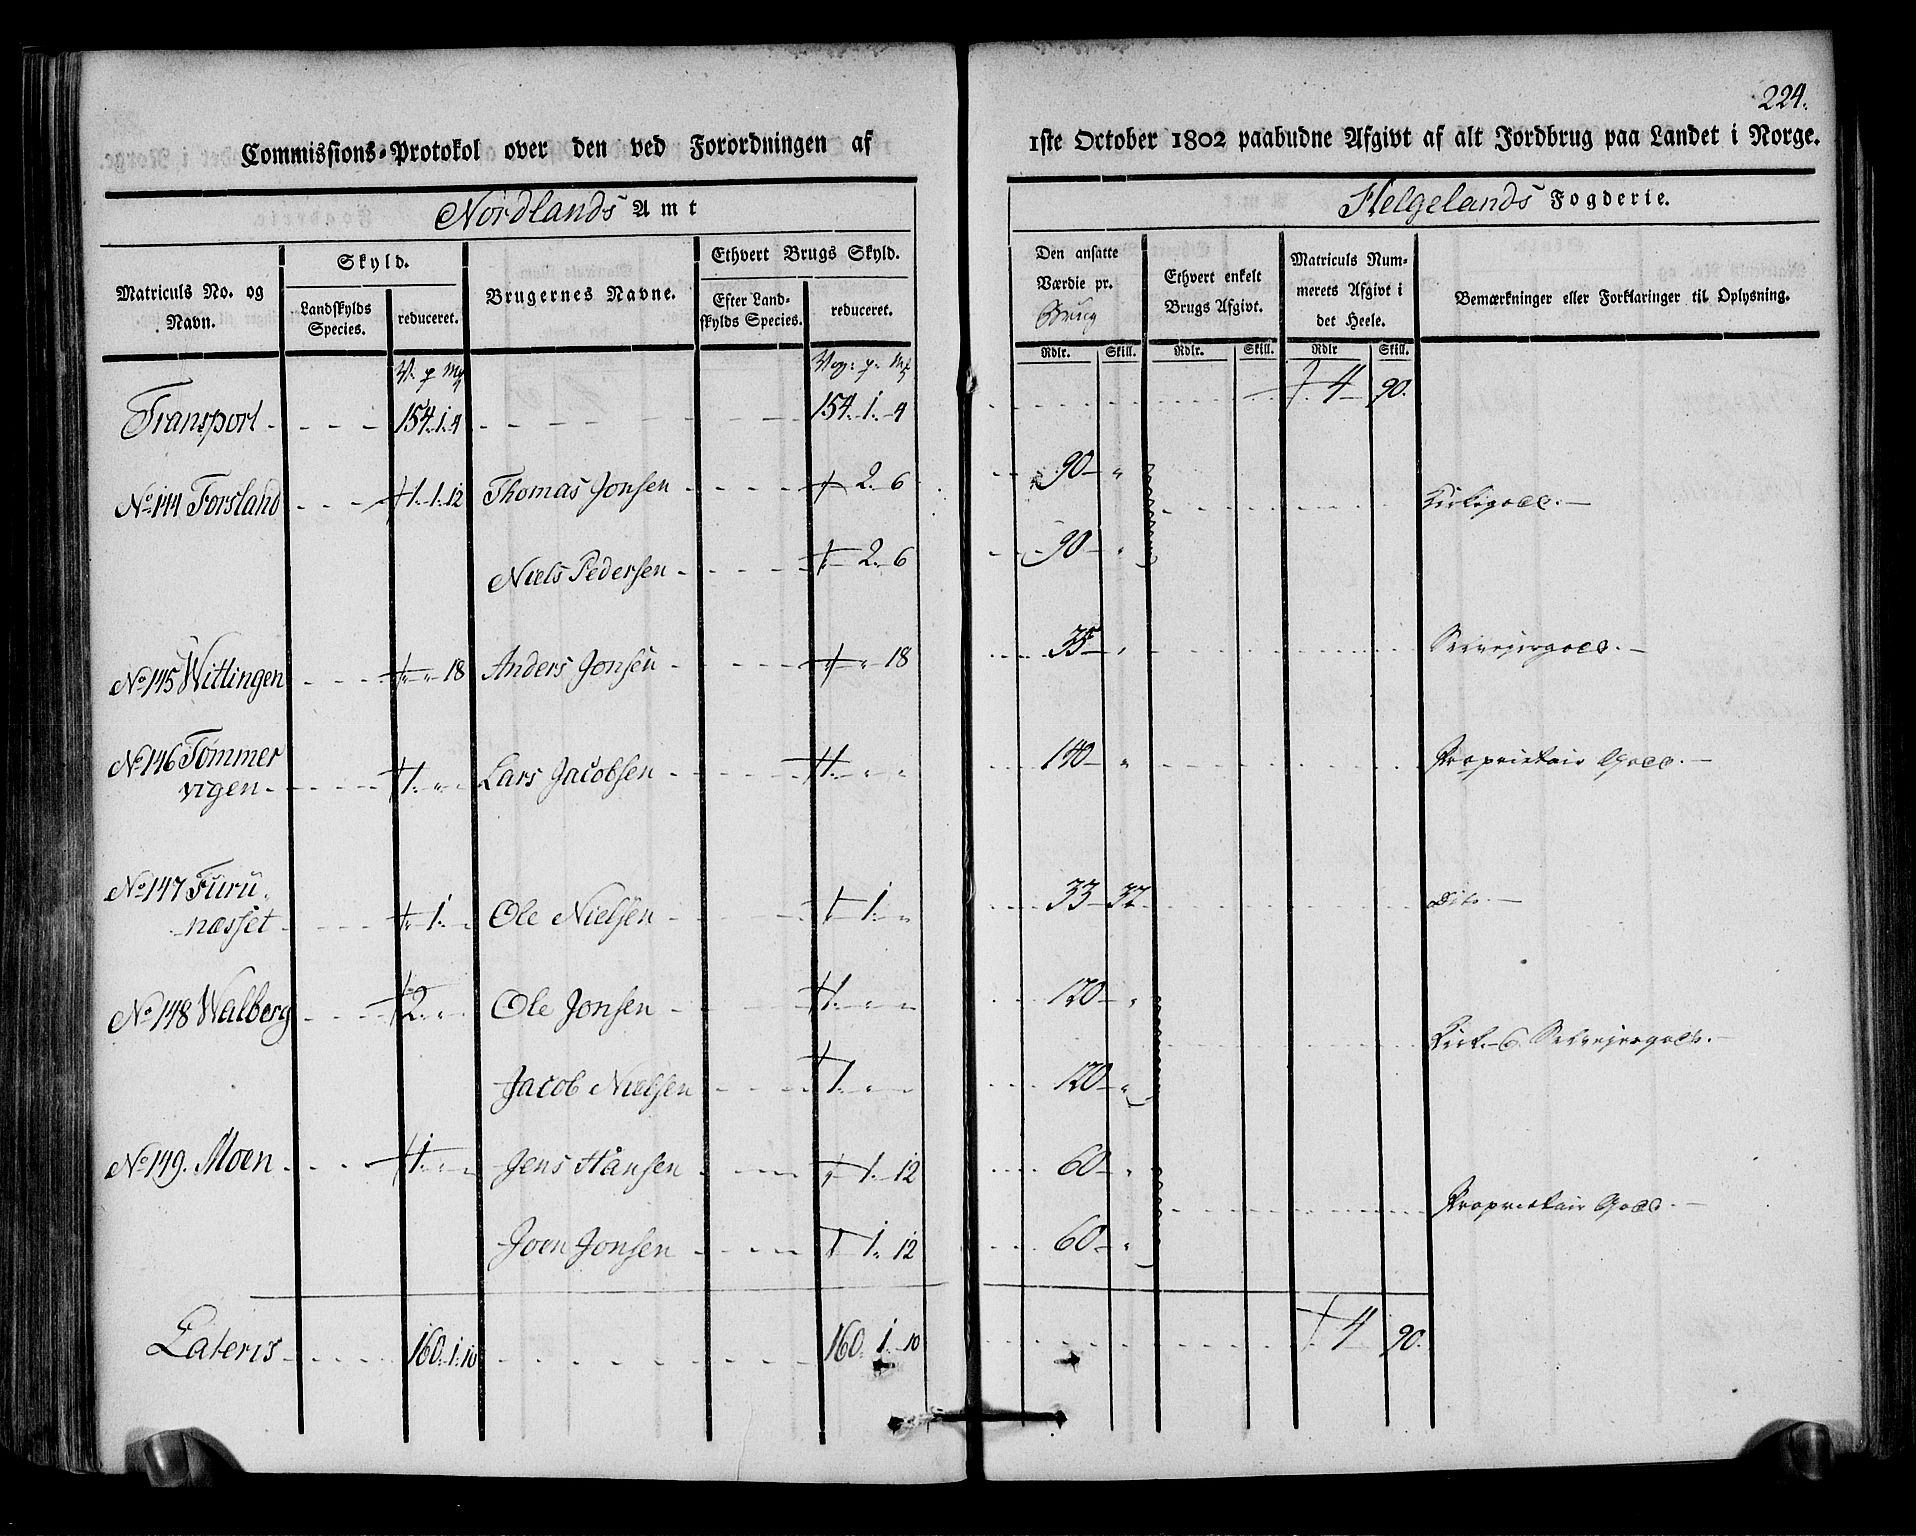 224.
Commissions-Protokol over den ved Forordningen af 1ste October 1802 paabudne Afgivt af alt Jordbrug paa Landet i Norge.
Nordlands Amt
Helgelands Fogderie.
Matriculs No. og Navn.
Skyld.
Landskylds Species.
reduceret.
Brugernes Navne.
Ethvert Brugs Skyld.
Efter Landskylds Species.
reduceret.
Den ansatte Værdie pr. Brug
Ethvert enkelt Brugs Afgivt.
Matriculs Nummerets Afgivt i det Heele.
Bemærkninger eller Forklaringer til Oplysning.
Rdlr. Skill. Rdlr. Skill. Rdlr Skill.
Transport 154. 1. 4 154. 1. 4 4 90.
No 144 Forsland 1. 1. 12 Thomas Jonsen 2. 6 90 " Kirkegods.
Niels Pedersen 2. 6 90 "
No 145 Wittingen " 18 Anders Jonsen " 18 35 " Selveiergods.
No 146 Tømmer
vigen 1. " " Lars Jacobsen 1. " " 140 " Proprietair Gods.
No 147 Furu-
næsset 1. " Ole Nielsen 1. " 33 32 Dito.
No 148 Walberg 2. " " Ole Jonsen 1. " " 120 "
Kirke- & Selveiergods.
Jacob Nielsen 1. " " 120 "
No 149. Moen 1. " " Jens Hansen 1. 12 60 "
Proprietair Gods.
Joen Jonsen 1. 12 60 "
Lateris 160. 1. 10 160. 1. 10 4 90.